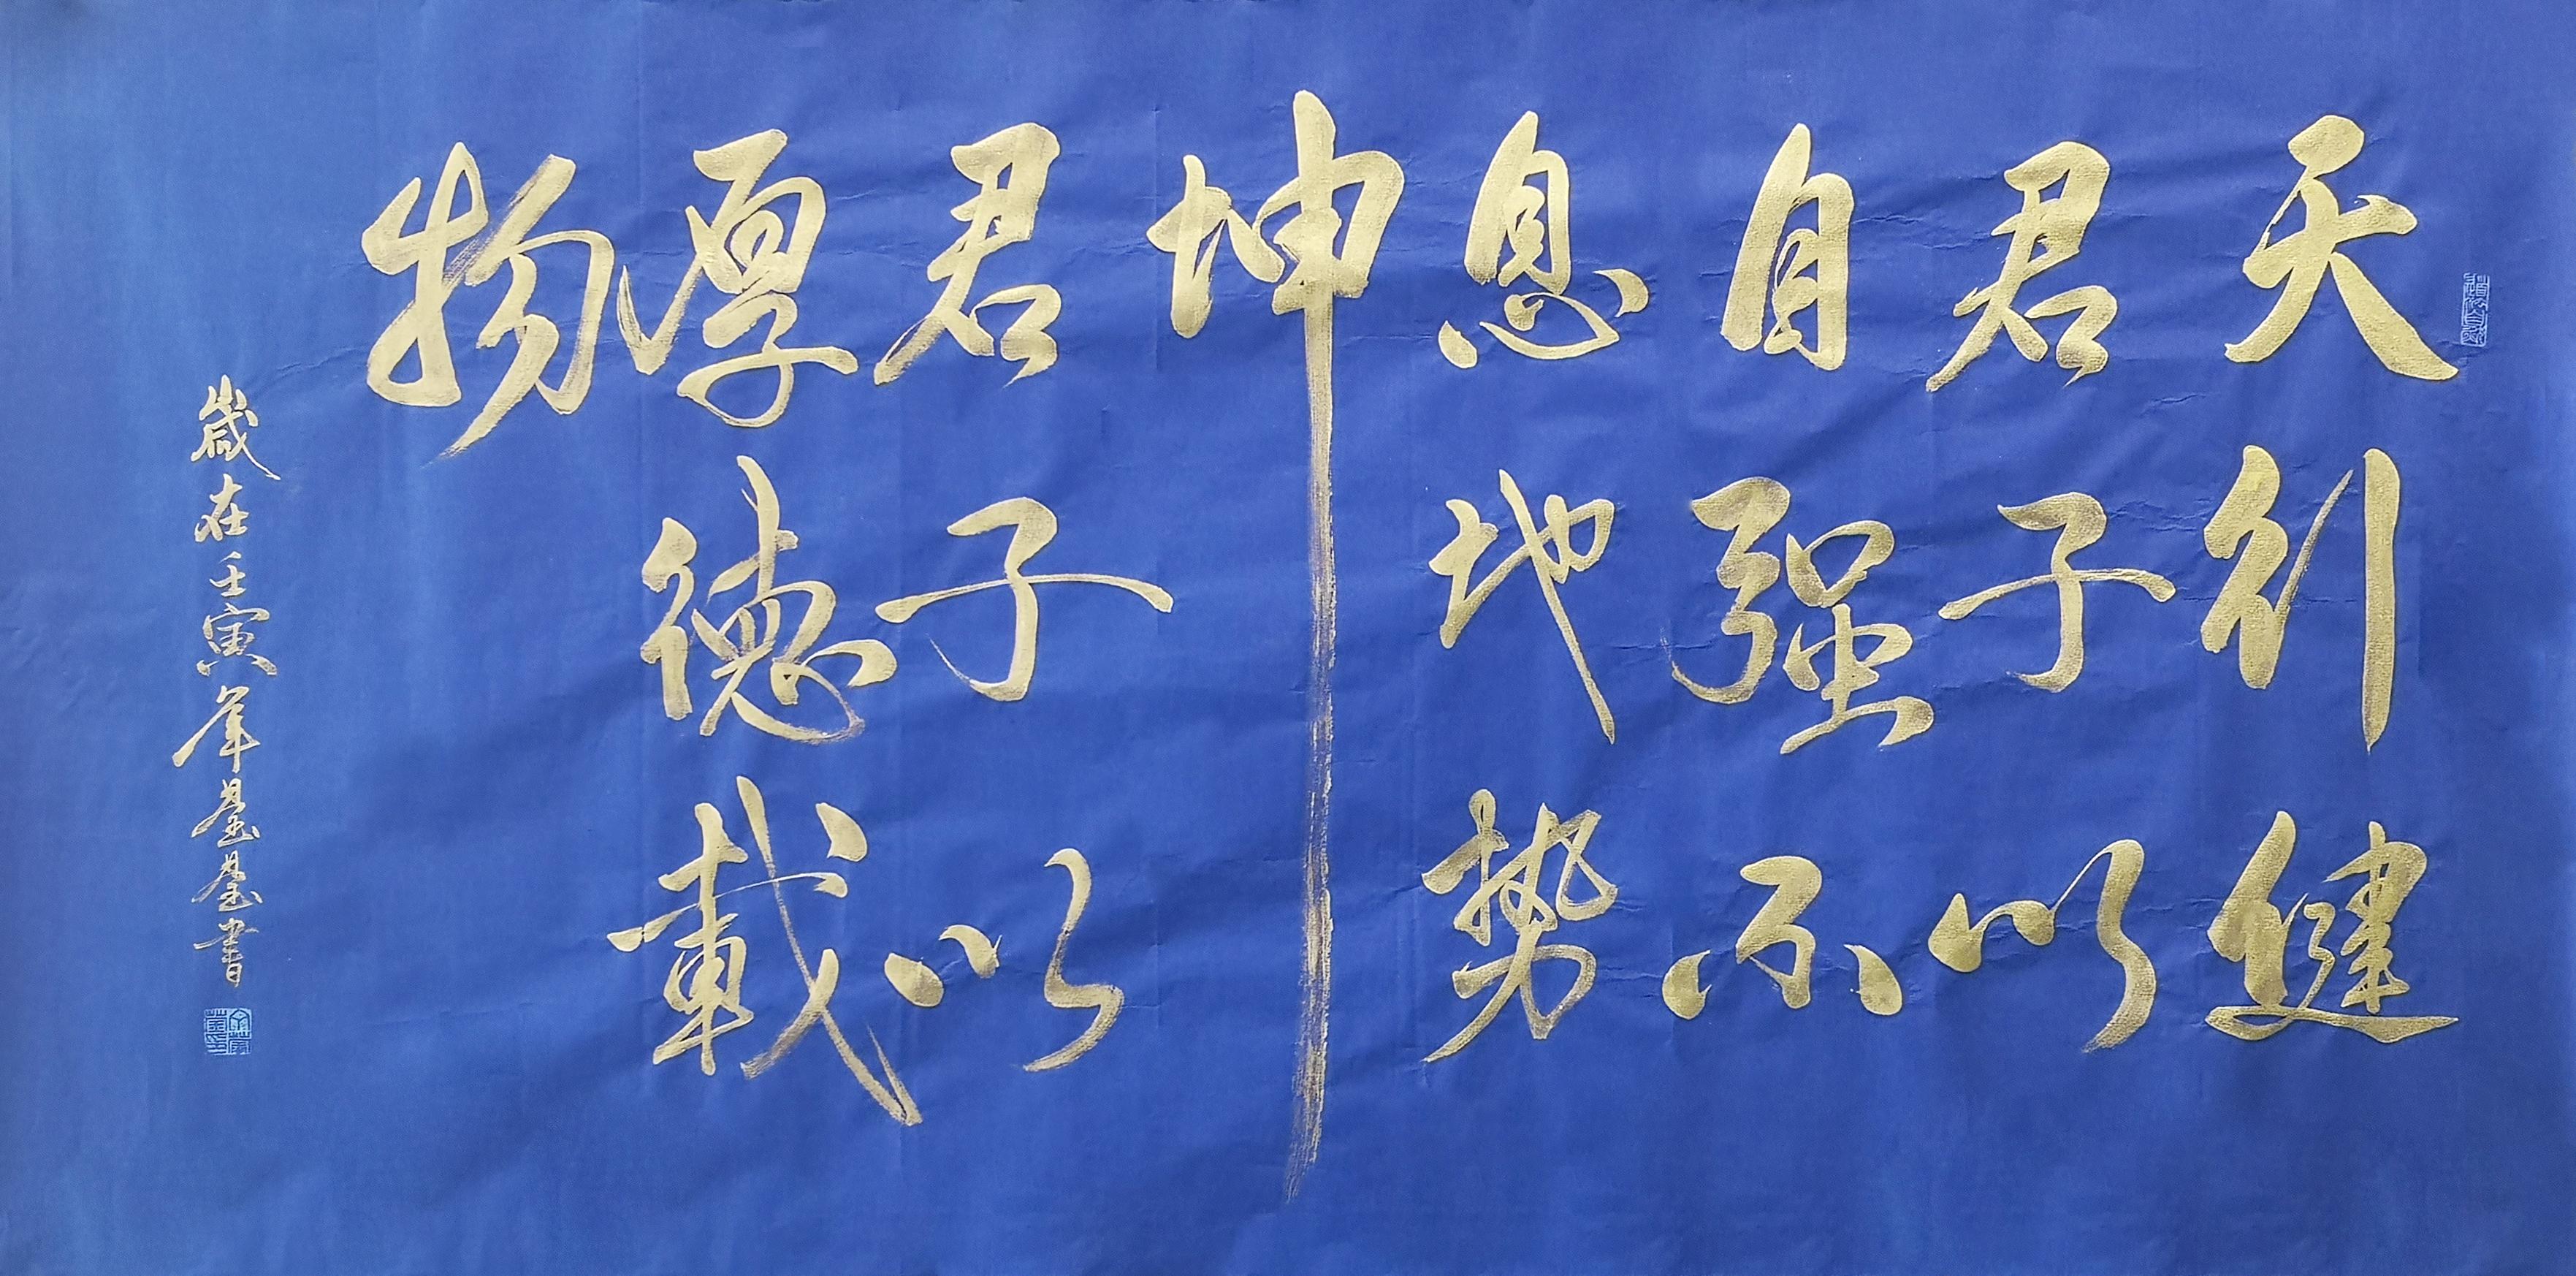 天行健
君子以
自强不
息地势
坤
君子以
厚德載
物
歲在壬寅年基基書